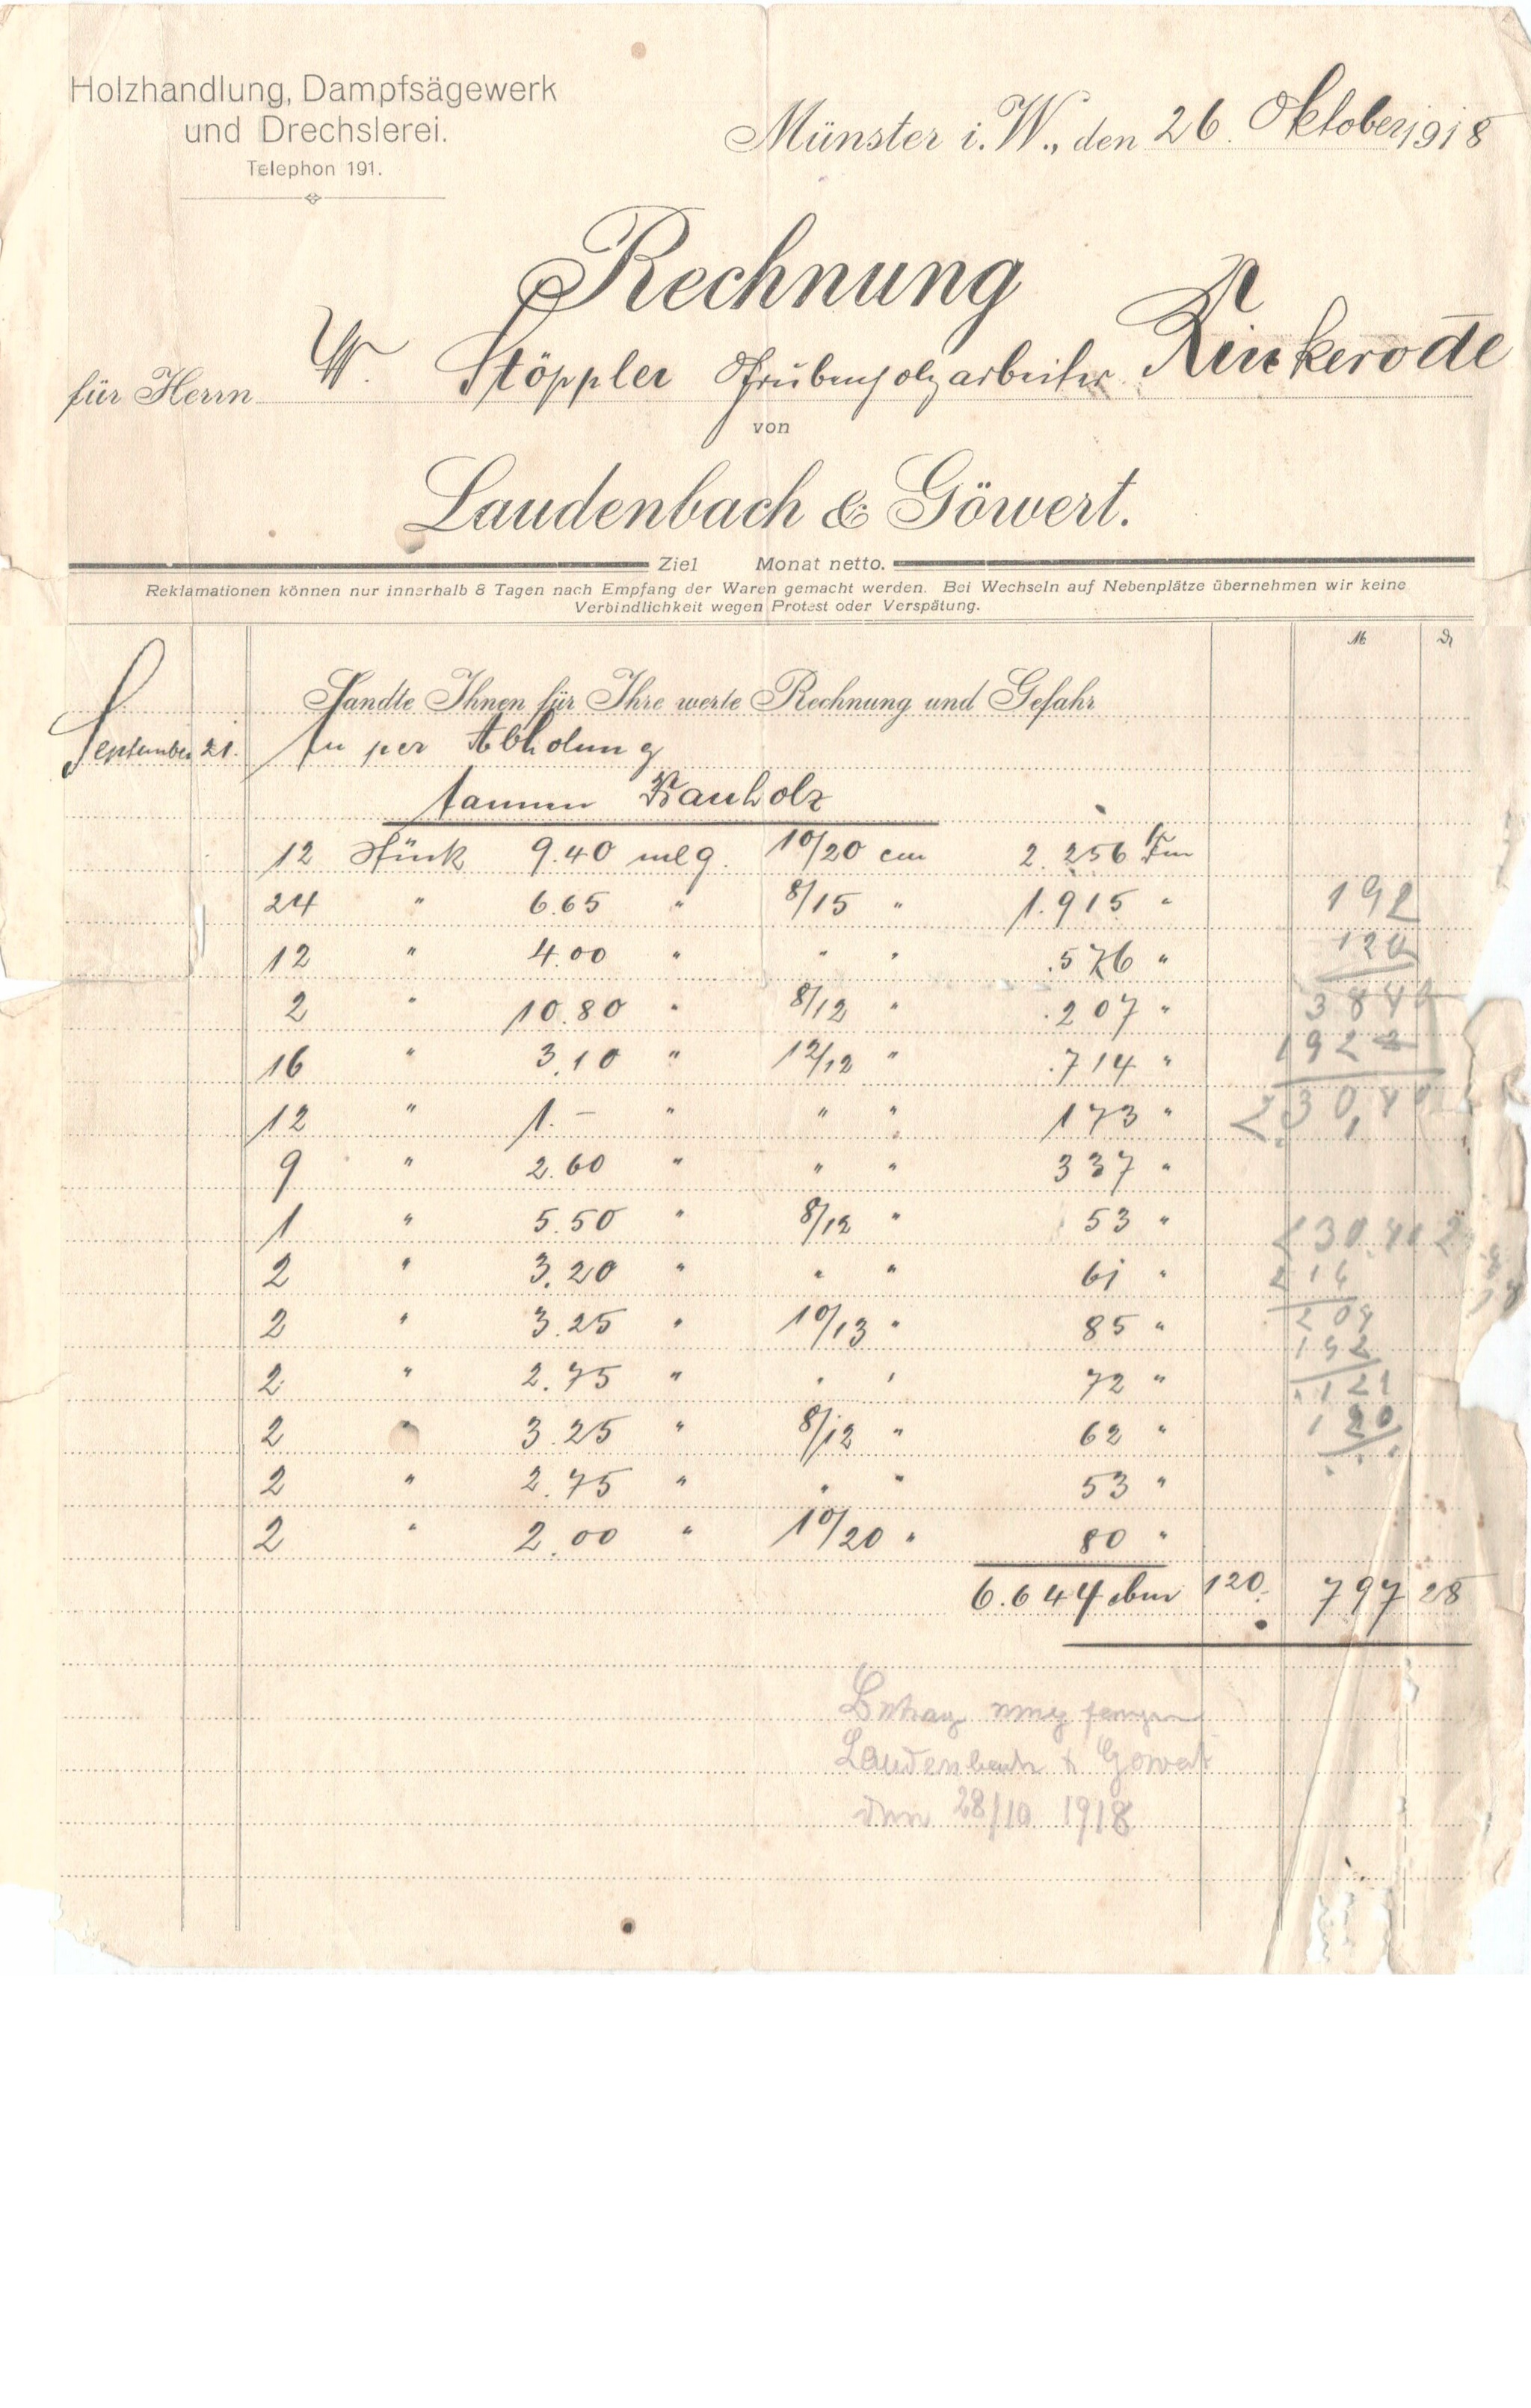 Holzhandlung, Dampfsägewerk
und Drechslerei.
Telephon 191.
Münster i. W., den 26. Oktober 1918
Rechnung
für Herrn W. Stöppler Grubenholzarbeiter Rinkerode
von
Laudenbach & Göwert.
Ziel Monat netto.
Reklamationen können nur innerhalb 8 Tagen nach Empfang der Waren gemacht werden. Bei Wechseln auf Nebenplätze übernehmen wir keine
Verbindlichkeit wegen Protest oder Verspätung.
M ₰
Sandte Ihnen für Ihre werte Rechnung und Gefahr
September 21. An per Abholung
tannen Bauholz
12 Stück 9.40 mlg. 10/20 cm 2.256 fm
24 " 6.65 " 8/15 " 1.915 "
12 " 4.00 " " " .576 "
2 " 10.80 " 8/12 " .207 "
16 " 3.10 " 12/12 " .714 "
12 " 1.– " " " 173 "
9 " 2.60 " " " 337 "
1 " 5.50 " 8/12 " 53 "
2 " 3.20 " " " 61 "
2 " 3.25 " 10/13 " 85 "
2 " 2.75 " " " 72 "
2 " 3.25 " 8/12 " 62 "
2 " 2.75 " " " 53 "
2 " 2.00 " 10/20 " 80 "
6.644 cbm 120. 797 28
192
120
384
192
230,4
230.40
214
204
192
121
120
Betrag empfangen
Laudenbach & Göwert
den 28/10 1918